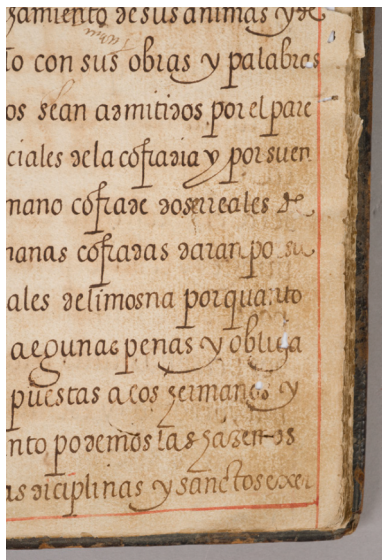 zamiento de sus animas y de
lo con sus obras y palabras
os sean admitidos por el pare
ciales dela cõfradia y por su en
mano cofrade doze reales de
manas cõfradas daran po su
ales de limosna por quanto
a algunas penas y obliga
puestas a los hermanos y
nto podemos las hazen os
as diciplinas y sanctos exer